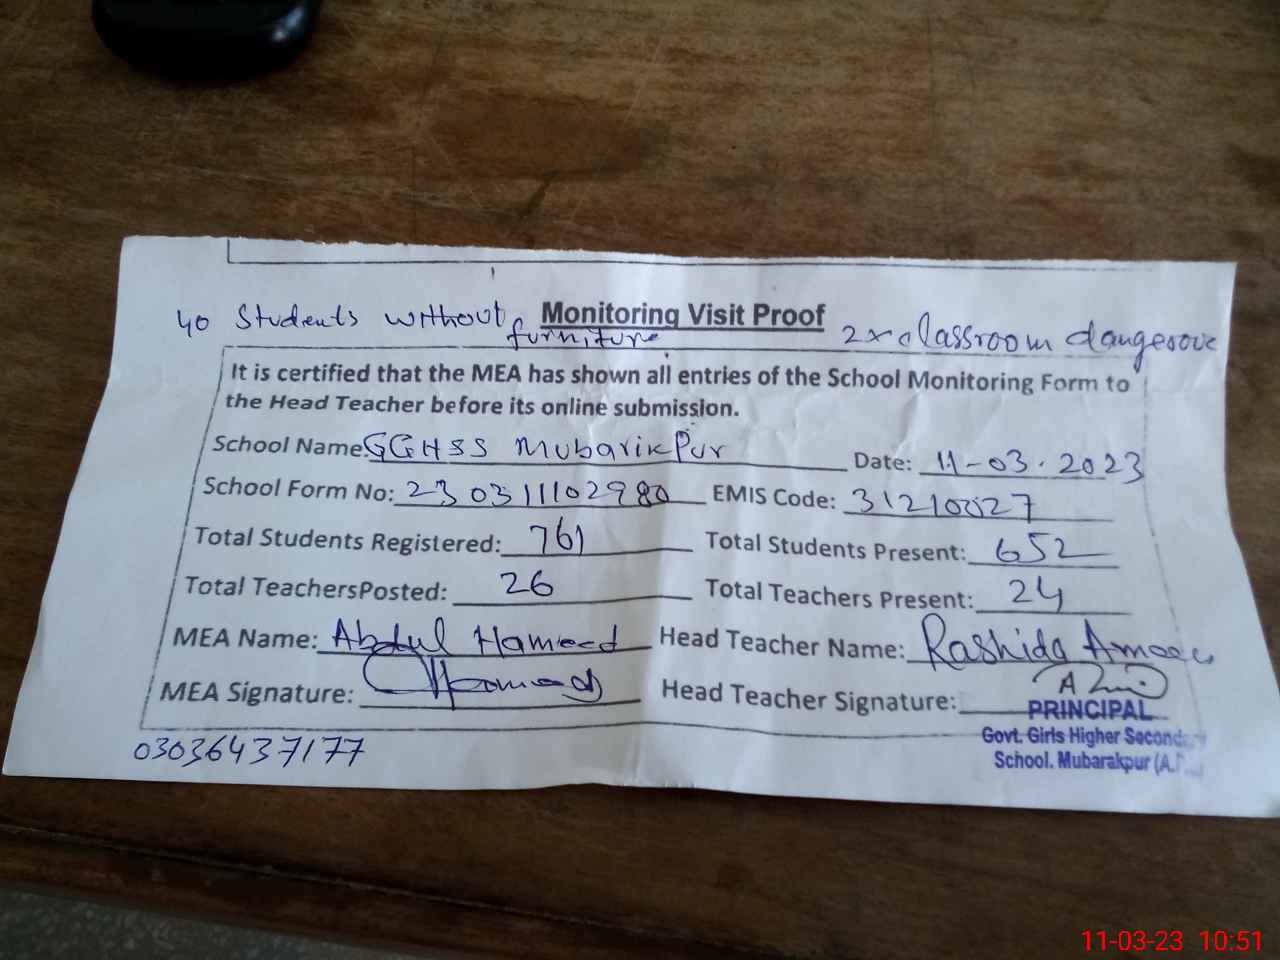 Monitoring Visit Proof
40 Students without furniture
2x classroom dangerous
It is certified that the MEA has shown all entries of the School Monitoring Form to
the Head Teacher before its online submission.
School Name: GGHSS Mubarikpur Date: 11-03-2023
School Form No: 230311102980 EMIS Code: 31210027
Total Students Registered: 761 Total Students Present: 652
Total TeachersPosted: 26 Total Teachers Present: 24
MEA Name: Abdul Hameed Head Teacher Name: Rashida
MEA Signature: Hameed Head Teacher Signature:
PRINCIPAL
Govt. Girls Higher
School. Mubarakpur
03036437177
11-03-23 10:51